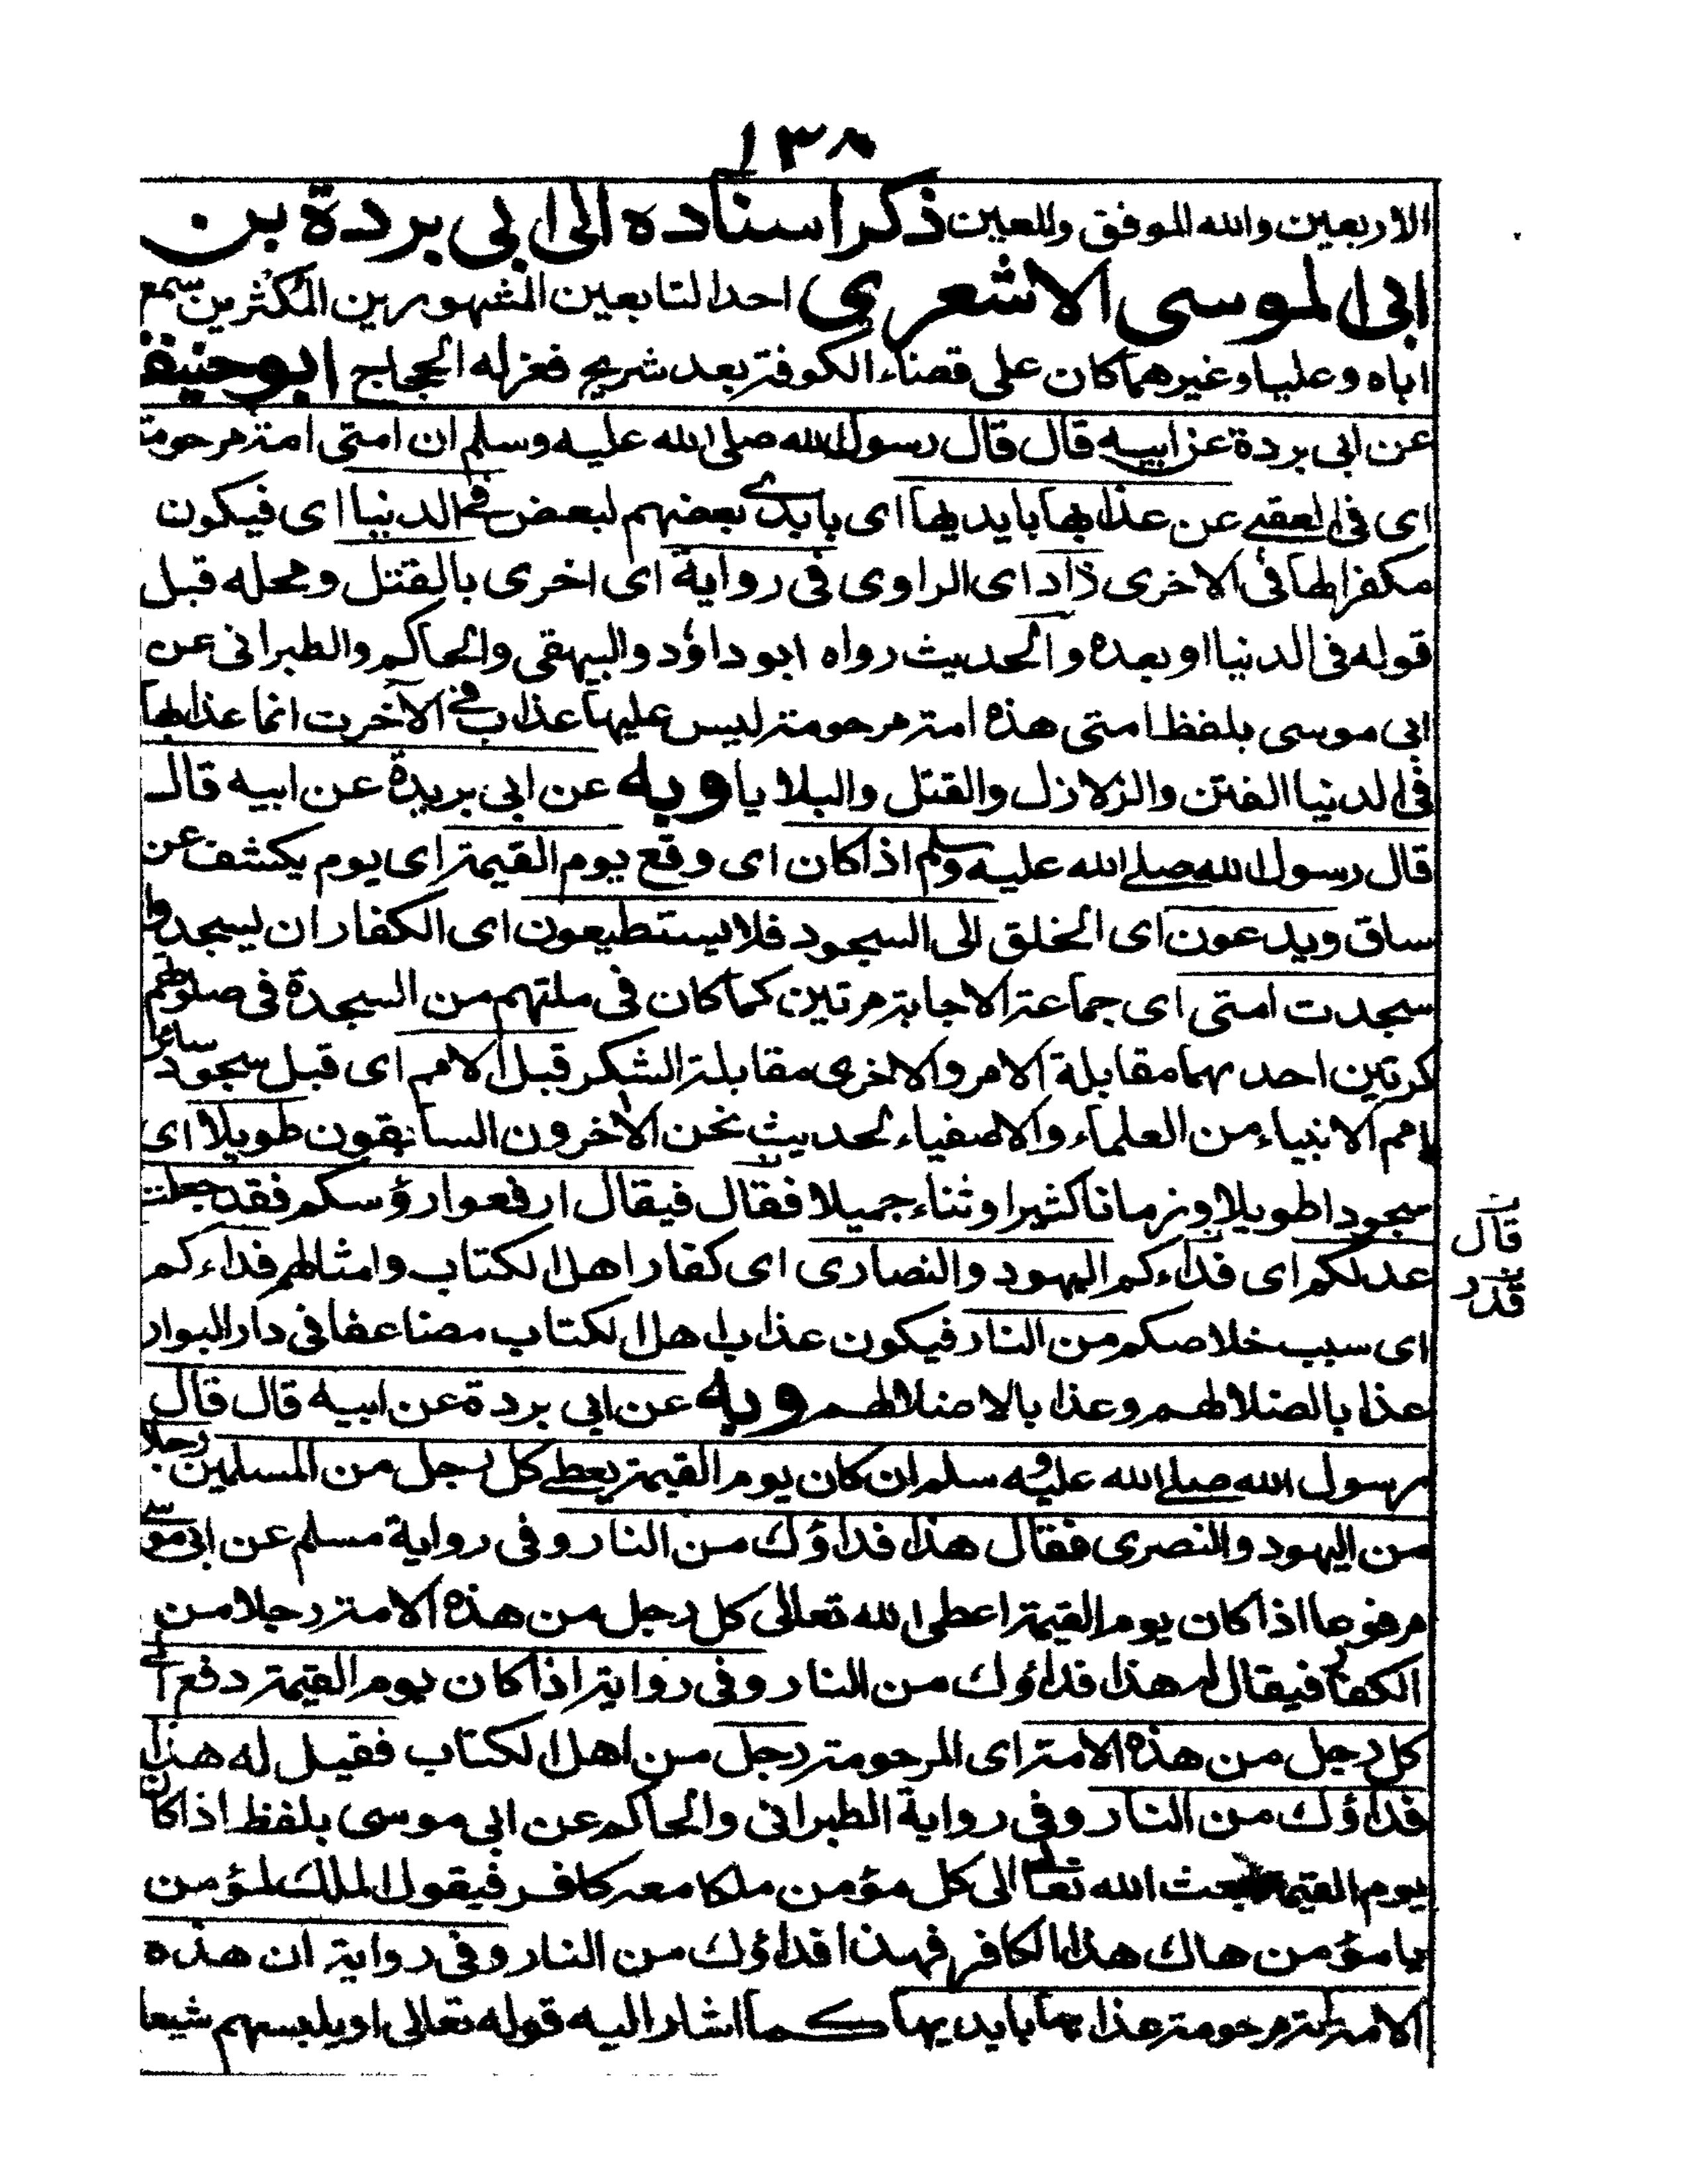 ١٣٨
الاربعين والله الموفق والمعين ذكر اسناده الى ابي بردة بن
ابي الموسى الاشعري احد التابعين المشهورين المكثرين سمع
اباه وعليا وغيرهما كان على قضاء الكوفة بعد شريح فعزله الحجاج ابو حنيفة
عن ابي بردة عن ابيه قال قال رسول الله صلى الله عليه وسلم ان امتى امة مرحومة
اى فى العقبے عن عذابها بايديها اى بايدے بعضهم لبعض فے الدنيا اى فيكون
مكفرا لها فى الاخرى زاد اى الراوى فى رواية اى اخرى بالقتل ومحله قبل
قوله فى الدنيا او بعده والحديث رواه ابو داؤد والبيهقى والحاكم والطبرانى عن
ابى موسى بلفظ امتى هذه امة مرحومة ليس عليها عذاب فے الآخرت انما عذابها
فى الدنيا الفتن والزلازل والقتل والبلايا وبه عن ابى بريدة عن ابيه قال
قال رسول الله صلے الله عليه وسلم اذا كان اى وقع يوم القيمة اى يوم يكشف عن
ساق ويدعون اى الخلق الى السجود فلا يستطيعون اى الكفار ان يسجدوا
سجدت امتى اى جماعة الاجابة مرتين كما كان فى ملتهم من السجدة فى صلوتهم
كرتين احدهما مقابلة الامر والاخرى مقابلة الشكر قبل الامم اى قبل سجود سائر
امم الانبياء من العلماء والاصفياء لحديث نحن الآخرون السابقون طويلا اى
سجودا طويلا وزمانا كثيرا وثناء جميلا فقال فيقال ارفعوا رؤسكم فقد جعلت
قال
عدلكم اى فداءكم اليهود والنصارى اى كفار اهل الكتاب وامثالهم فداءكم
قدر
اى سبب خلاصكم من النار فيكون عذاب اهل الكتاب مضاعفا فى دار البوار
عذابا لضلالهم وعذابا لاضلالهم وبه عن ابى بردة عن ابيه قال قال
رسول الله صلے الله عليه وسلم ان كان يوم القيمة يعطے كل رجل من المسلمين رجلا
من اليهود والنصرى فقال هذا فداؤك من النار وفى رواية مسلم عن ابى موسى
مرفوعا اذا كان يوم القيمة اعطى الله تعالى كل رجل من هذه الامة رجلا من
الكفار فيقال له هذا فداؤك من النار وفى رواية اذا كان يوم القيمة دفع الى
كل رجل من هذه الامة اى المرحومة رجل من اهل الكتاب فقيل له هذا
فداؤك من النار وفى رواية الطبرانى والحاكم عن ابى موسى بلفظ اذا كان
يوم القيمة بعث الله تعالى الى كل مؤمن ملكا معه كافر فيقول الملك لمؤمن
يا مؤمن هاك هذا الكافر فهذا فداؤك من النار وفى رواية ان هذه
الامة امة مرحومة عذابها بايديها كما اشار اليه قوله تعالى او يلبسهم شيعا